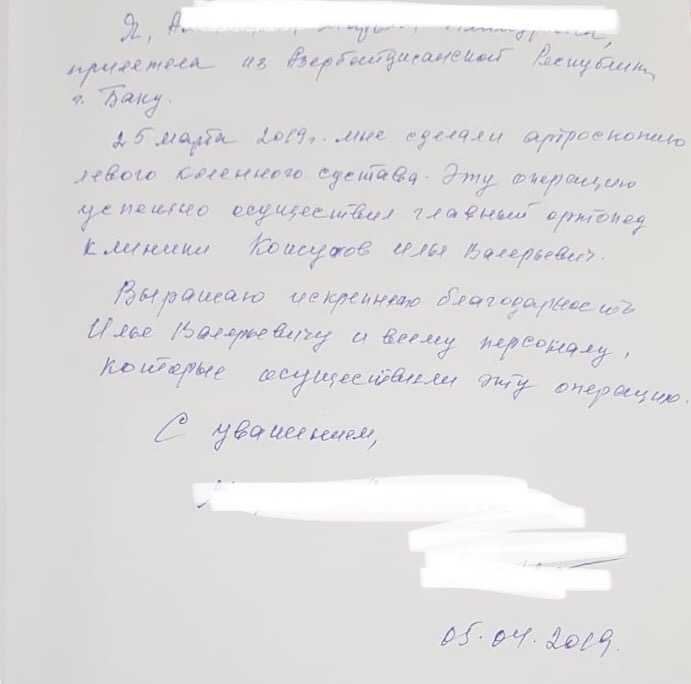 Я,
из Азербайджанской Республики,
г. Баку.
25 марта 2019г. мне сделали артроскопию
левого коленного сустава. Эту операцию
успешно осуществил главный ортопед
клиники Илья Валерьевич.
Выражаю искреннюю благодарность
Илье Валерьевичу и всему персоналу,
которые осуществили эту операцию.
С уважением,
05.04.2019.